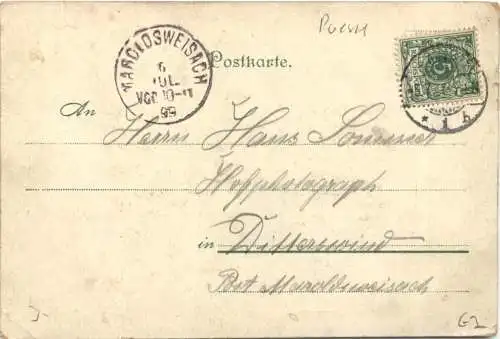 MAROLDSWEISACH
6
JUL.
VOR.10-11
99
Postkarte.
An Herrn Hans Sommer
Hofphotograph
in Ditterswind
Post Maroldsweisach
G2